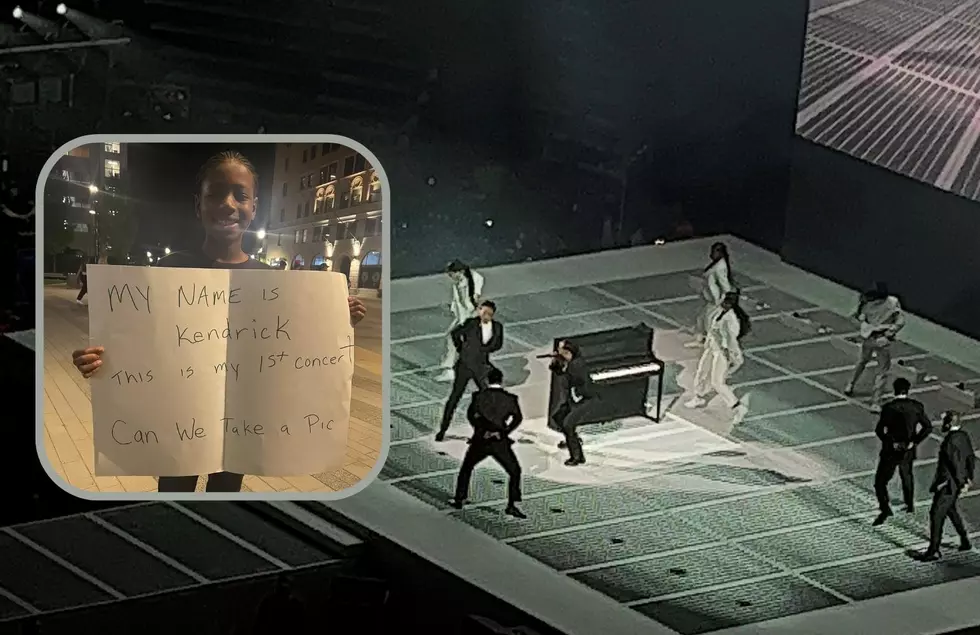 MY NAME is
Kendrick
This is my 1st concert
Can We Take a Pic